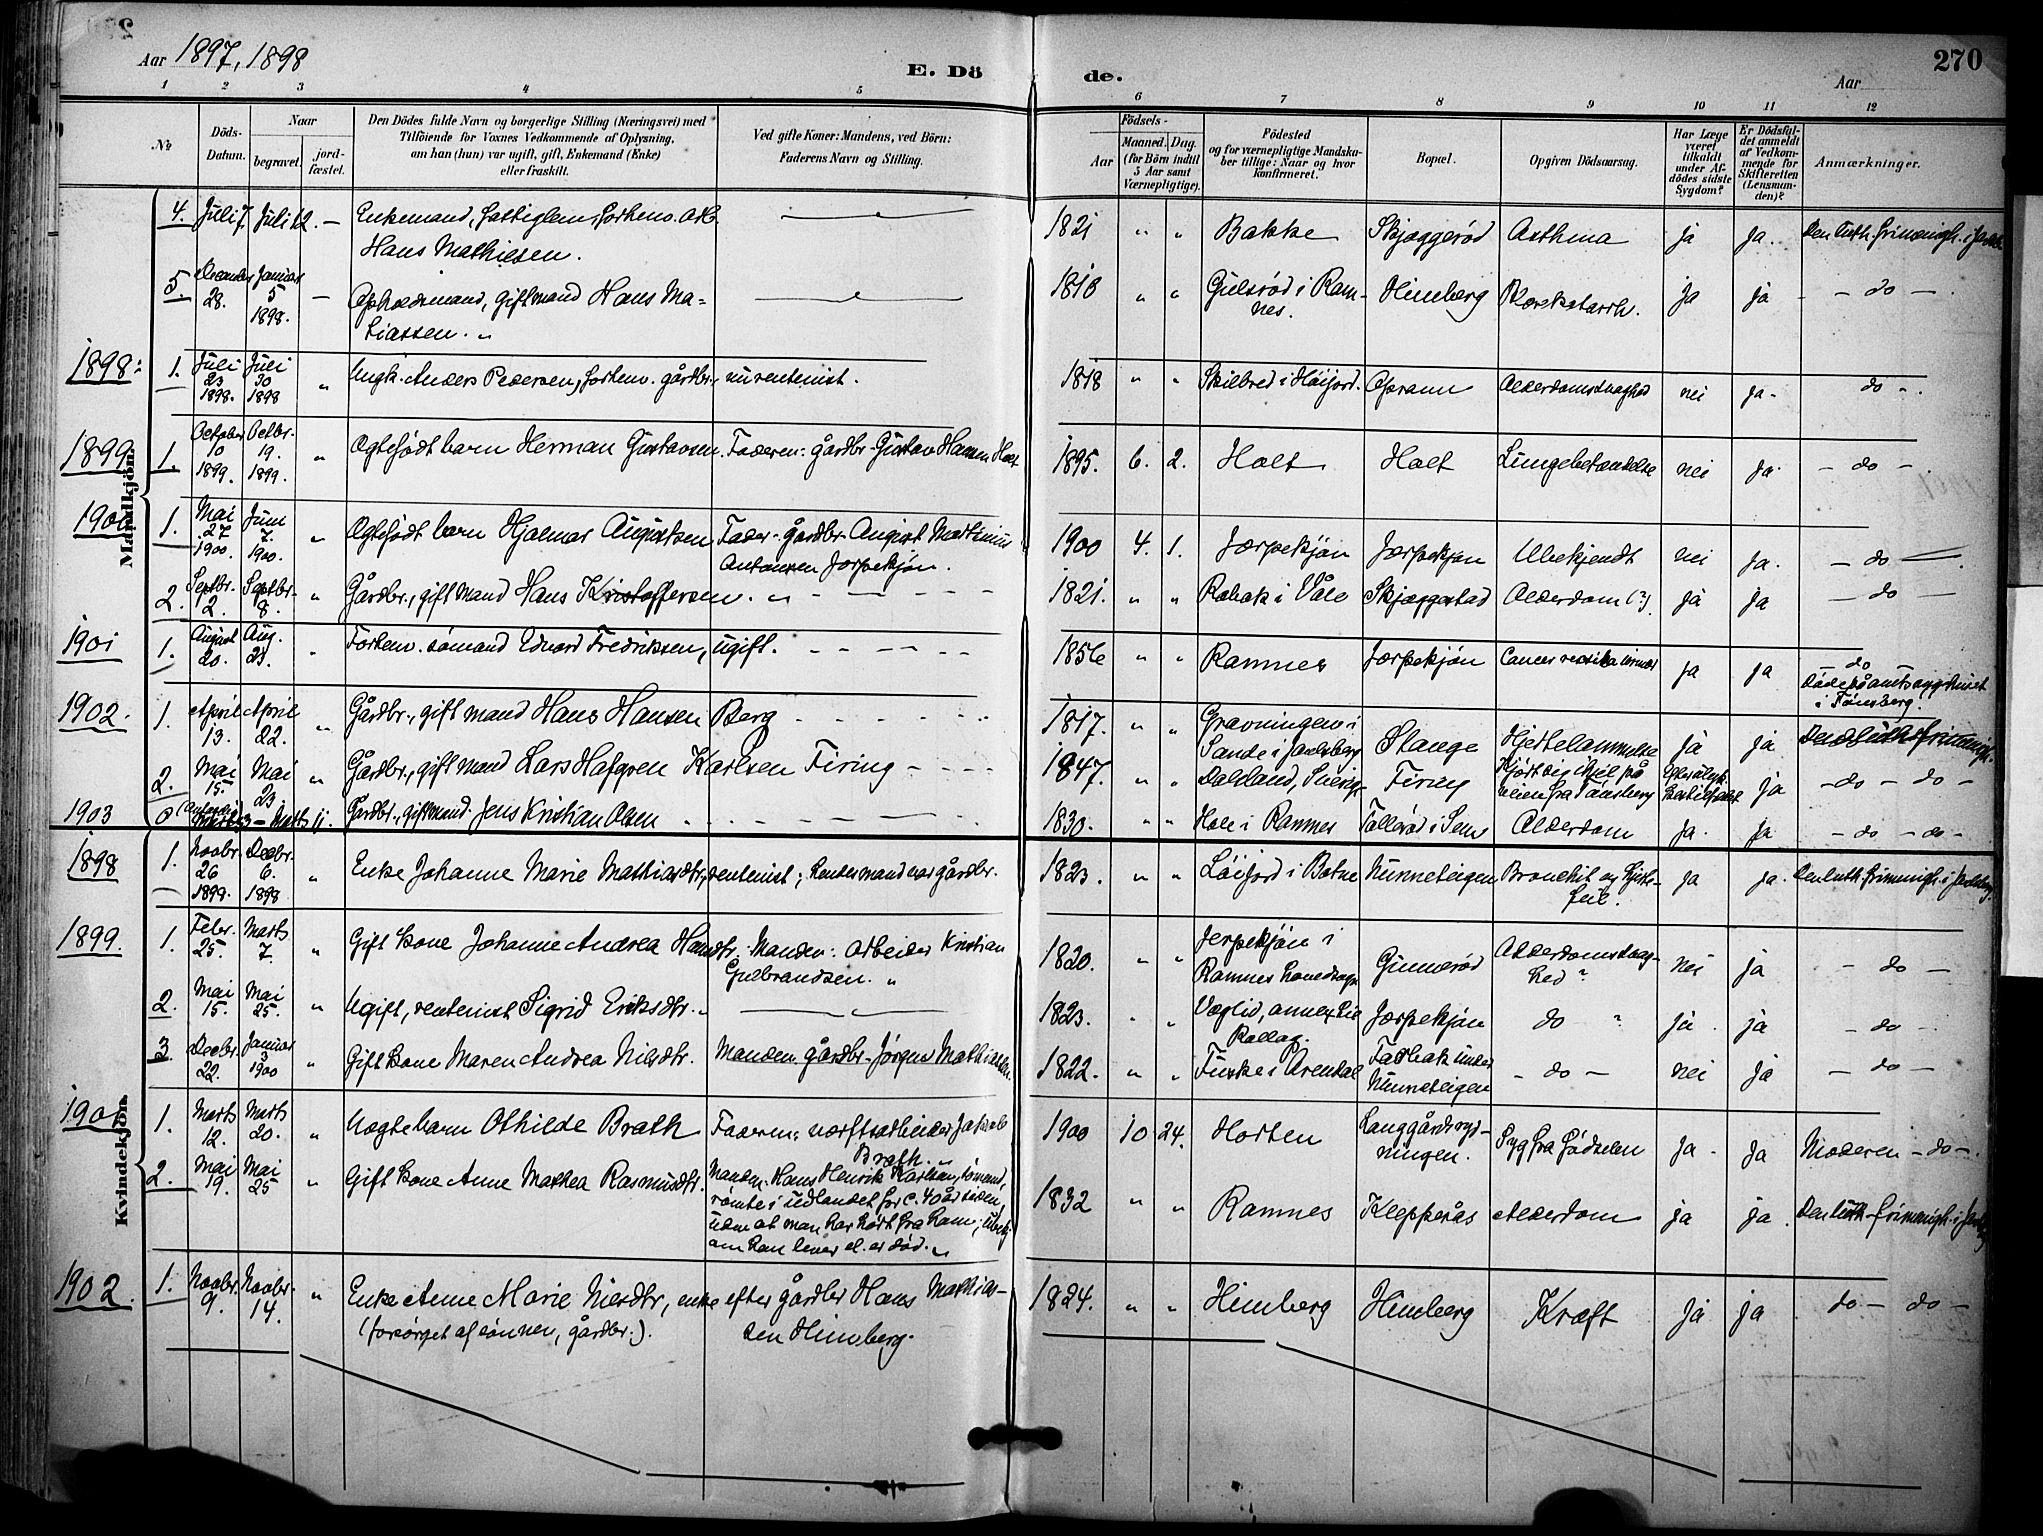 Aar 1897, 1898
E. Dö de.
Aar
270
1 2 3 4 5 6 7 8 9 10 11 12
№
Döds-Datum.
Naar
begravet.
jord-fæstet.
Den Dödes fulde Navn og borgerlige Stilling (Næringsvei) med
Tilföiende for Voxnes Vedkommende af Oplysning,
om han (hun) var ugift, gift, Enkemand (Enke)
eller fraskilt.
Ved gifte Koner: Mandens, ved Börn:
Faderens Navn og Stilling.
Födsels-
Aar
Maaned. Dag.
(for Börn indtil
5 Aar samt
Værnepligtige).
Födested
og for værnepligtige Mandska-
ber tillige: Naar og hvor
konfirmeret.
Bopæl.
Opgiven Dödsaarsag.
Har Læge
været
tilkaldt
under Af-
dödes sidste
Sygdom?
Er Dödsfal-
det anmeldt
af Vedkom-
mende for
Skifteretten
(Lensman-
den)?
Anmærkninger.
Mandkjön.
4. Juli 7. Juli 12. — Enkemand, fattiglem, forhenv. arb.
Hans Mathiesen.
1821 " " Bakke Skjæggerød Asthma ja ja. Den luth. frimenigh. i Jarlsb.
5. December 28. Januar 5 1898. — Opholdsmand, gift mand Hans Ma=
tiassen. "
1818 " " Gulsrød i Ram-
nes. Himberg Blærekatarrh. ja ja — do —
1898: 1. Juli 23 1898. Juli 30 1898 " Ungk. Anders Pedersen, forhenv. gårdbr., nu rentenist.
1818 " " Skilbred i Höifjord. Opramn Alderdomssvaghed nei ja. do
1899 1. October 10 1899. Octbr. 19. 1899. " Ægtefødt barn Herman Gustavsen. Faderen: gårdbr. Gustav Hansen Holt
1895. 6. 2. Holt Holt Lungebetændelse nei ja. — do —
1900 1. Mai 27 1900. Juni 7. 1900. " Ægtefødt barn Hjalmar Augustsen Fader: Gårdbr. August Martinius
Antonsen Jorpekjön.
1900 4. 1. Jærpekjön Jærpekjön Ubekjendt nei ja. — do —
2. Septbr. 2. Septbr. 8. " Gårdbr., gift mand Hans Kristoffersen. "
1821. " " Røbak i Våle Skjæggestad Alderdom (?). ja ja — do —
1901 1. August 20. Aug. 23. " Forhenv. sømand Edvard Fredriksen, ugift.
1856 " " Ramnes Jærpekjön Cancer ja ja do
Døde på amtssygehuset
i Tönsberg.
1902. 1. April 13. April 22. " Gårdbr., gift mand Hans Hansen Berg
1817. " " Gravningen i
Sande i Jarlsberg Stange Hjertelammelse ja ja Den luth. frimenigh.
2. Mai 15. Mai 23. " Gårdbr., gift mand Lars Hafgren Karlsen Firing
1847. " " Dalsland, Sverige Firing Kjørt sig ihjel på
veien fra Tönsberg ja — do — do —
1903 Marts 11. Gårdbr., gift mand Jens Kristian Olsen
1830. " " Hole i Ramnes Tallerød i Sem Alderdom ja. ja — do — do —
Kvindekjön.
1898 1. Novbr. 26 1899. Decbr. 6. 1898 " Enke Johanne Marie Mathiasdtr., rentenist; hendes mand var gårdbr.
1823. " " Löifjord i Botne Nunneteigen Bronchit og hjerte-
feil. ja ja. Den luth. frimenigh. i Jarlsberg.
1899. 1. Febr. 25. Marts 7. " Gift kone Johanne Andrea Hansdtr. Manden: Arbeider Kristian
Gulbrandsen. "
1820. " " Jerpekjön i
Ramnes hovedsogn Gunnerød Alderdomssvag-
hed? nei ja — do —
2. Mai 15. Mai 25. " Ugift, rentenist Sigrid Eriksdtr. "
1823. " " Veglid, annex til
Rollag. Jærpekjön do ? ja. ja — do —
3. Decbr. 22. Januar 3 1900 " Gift kone Maren Andrea Nilsdtr. Manden gårdbr. Jørgen Mathiassen.
1822. " " Fuske i Arendal Faxbak under
Nunneteigen — do — nei ja — do —
1901 1. Marts 12. Marts 20. " Uægte barn Othilde Brath Faderen: værftsarbeider Jakob
Brath. "
1900 10 24. Horten Langgårdsryd-
ningen. Syg fra fødselen ja. ja Moderen — do —
2. Mai 19. Mai 25 " Gift kone Anne Mathea Rasmusdtr. Manden: Hans Henrik Karlsen, sømand,
rømte i udlandet for c. 40 år siden,
uden at man har hørt fra ham; ubekj.
om han lever el. er død. "
1832 " " Ramnes Klepperås Alderdom ja ja. Den luth. frimenigh. i Jarlsberg
1902. 1. Novbr. 9. Novbr. 14. " Enke Anne Marie Nilsdtr, enke efter gårdbr Hans Mathias-
(forsørget af sønnen, gårdbr.). sen Himberg.
1824. " " Himberg Himberg Kræft ja ja do — do —